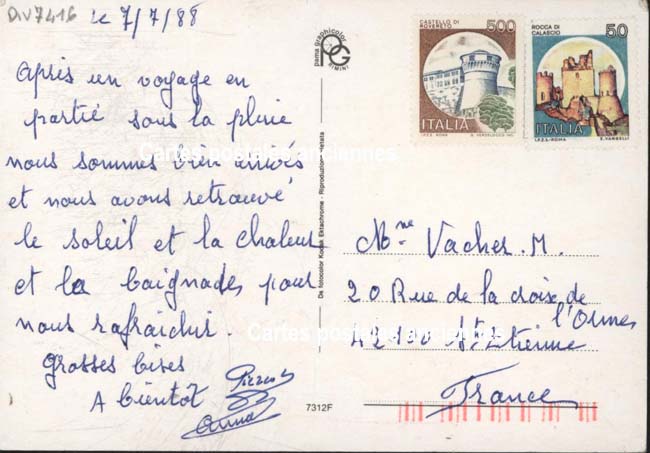 DIV7416
le 7/7/88
Après un voyage en
partie sous la pluie
nous sommes bien arrivés
et nous avons retrouvé
le soleil et la chaleur
et la baignades pour
nous rafraichir.
Grosses bises
A bientôt
Anna
pama graphicolor
PG
RIMINI
De fotocolor Kodak Ektachrome - Riproduzione vietata
7312F
CASTELLO DI
ROVERETO
500
ITALIA
I.P.Z.S. ROMA
ROCCA DI
CALASCIO
50
ITALIA
I.P.Z.S. - ROMA
E. VANGELLI
Mme Vacher. M.
20 Rue de la croix de
l'Ormes
42100 St. Etienne
France
Cartes postales anciennes
Cartes postales anciennes